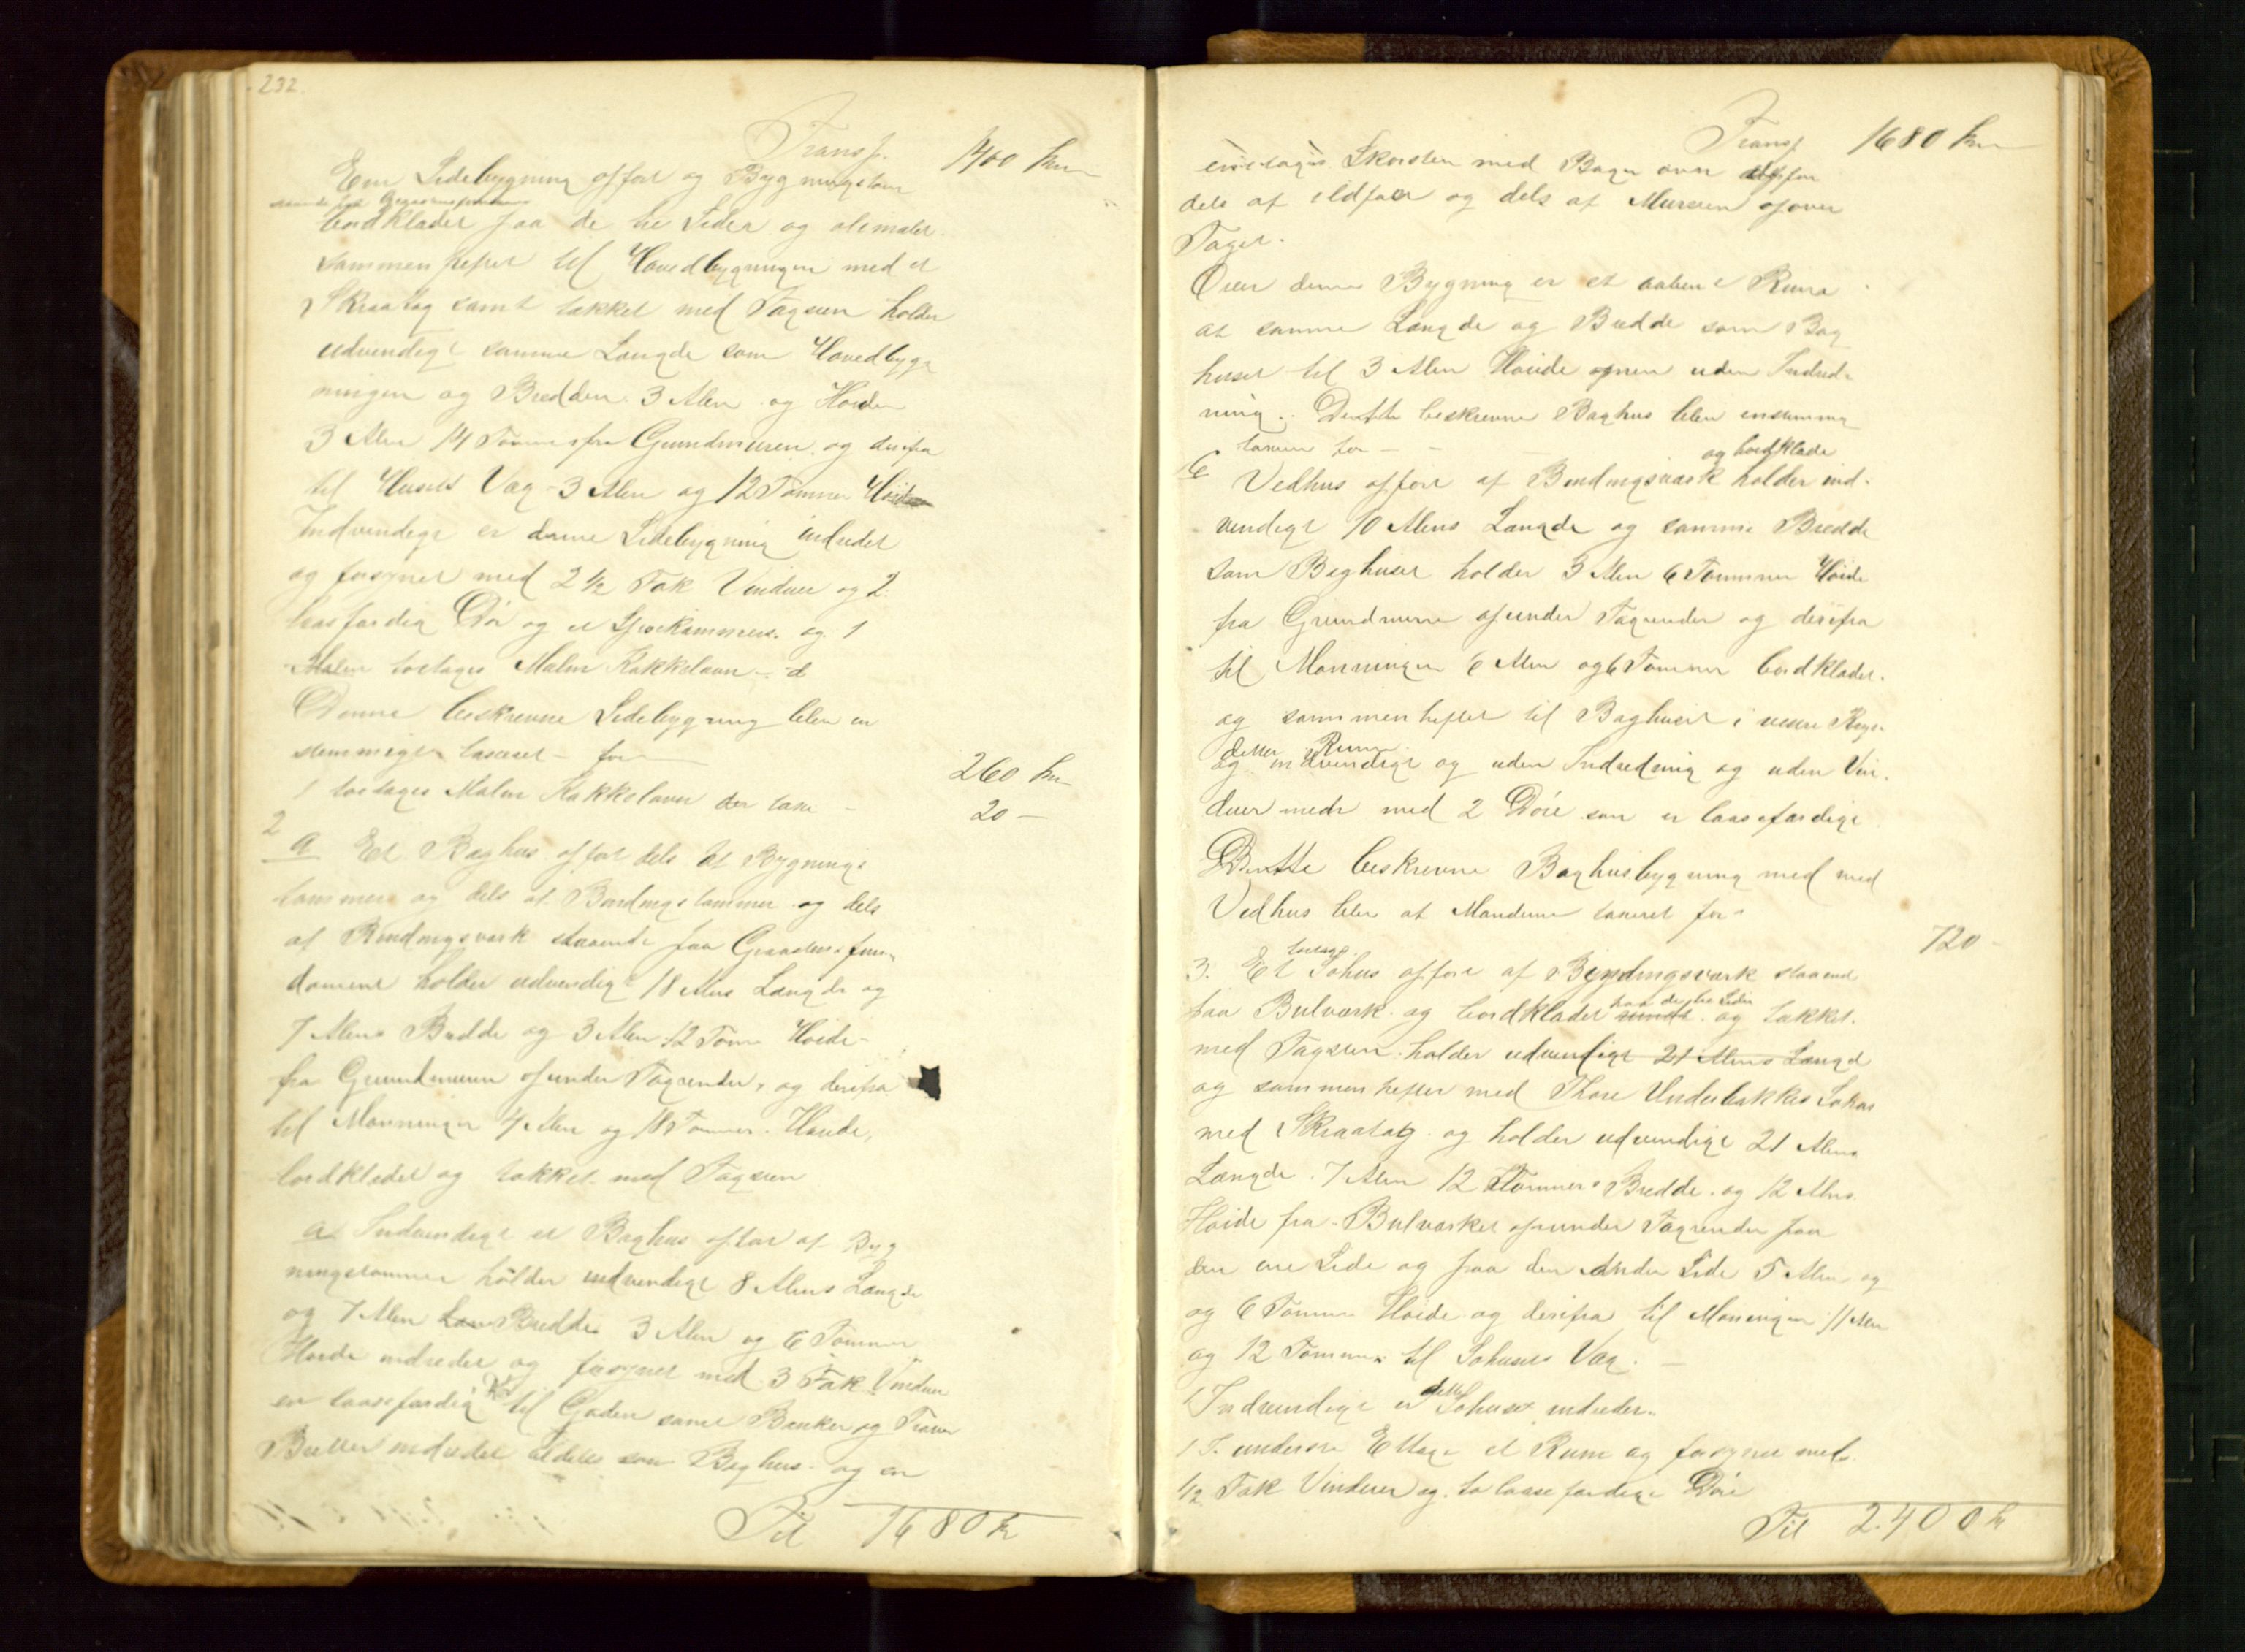 232.
Transp. 1400 Kr
Een Sidebygning opført og Bygningstom
bordklædet paa de tre Sider og olemalet
sammenheftet til Hovedbygningen med et
Skraatag samt tækket med Tagsten holder
udvendigt samme Længde som Hovedbyg-
ningen og Bredden 3 Alen og Høiden
3 Alen 14 Tommer fra Grundmuren og derifra
til Husets Væg 3 Alen og 12 Tommer Høide
Indvendigt er denne Sidebygning indredet
og forsynet med 2 1/2 Fak Vinduer og 2
laasfærdig Dør og et Spisekammers og 1
Malm toetages Malm Kakkelovn
Denne beskrevne Sidebygning blev en
stemmigen taxeret for
260 Kr
1 toetages Malm Kakkelovn der taxe 20 —
2
a Et Baghus opført dels af Bygnings
tømmer og dels af Bindingstømmer og dels
af Bindingsværk staaende paa Graastens fun-
dament holder udvendigt 18 Alens Længde og
7 Alens Bredde og 3 Alen 12 Tom Høide
fra Grundmuren op under Tagrender, og derifra
til Mønningen 4 Alen og 18 Tommer Høide,
bordklædet og tækket med Tagsten
a Indvendigt er Baghus opført af Byg
ningstømmer holder udvendigt 8 Alens Længde
og 7 Alen Bredde 3 Alen og 6 Tommer
Høide indredet og forsynet med 3 Fak Vinduer
en laasefærdig til Gaden samt Bænker og
indredet som Baghus og en
Til 1680 Kr
Transp 1680 Kr
enetages Skorsten med Bager ovn opført
dels af ildfast og dels af Mursten op over
Taget.
Over denne Bygning er et aabent Rum
af samme Længde og Bredde som Bag
huset til 3 Alen Høide uden Indred-
ning. Dette beskrevne Baghus blev enstemmig
taxeret for — —
og bordklædt
Vedhus opført af Bindingsværk holder ind-
vendigt 10 Alens Længde og samme Bredde
som Baghuset holder 3 Alen 6 Tommer Høide
fra Grundmuren op under Tagrender og derifra
til Mønningen 6 Alen og 6 Tommer bordklædet
og sammenheftet til Baghuset i
dette Rum
og indvendigt og uden Indredning og uden Vin-
duer med 2 Døre som er laasefærdige
Dette beskrevne Baghusbygning med med
Vedhus blev af Mændene taxeret for
720 -
toetages
3. Et Søhus opført af Bindingsværk staaend
paa de tre Sider
paa Bulværk og bordklædet rundt og tækket
med Tagsten holder udvendigt 21 Alens Længd
og sammenheftet med Thore Underbakkes Søhus
med Skraatag og holder udvendigt 21 Alens
Længde 7 Alen 12 Tommers Bredde og 12 Alens
Høide fra Bulværket op under Tagrender paa
den ene Side og paa den anden Side 5 Alen og
og 6 Tommer Høide og derifra til Mønningen 11 Alen
og 12 Tommer til Søhusets Væg.
Indvendigt er dette Søhuset indredet
1 I. underste Ettage et Rum og forsynet med
1/2 Fak Vinduer og to laasefærdige Døre
Til 2.400 Kr